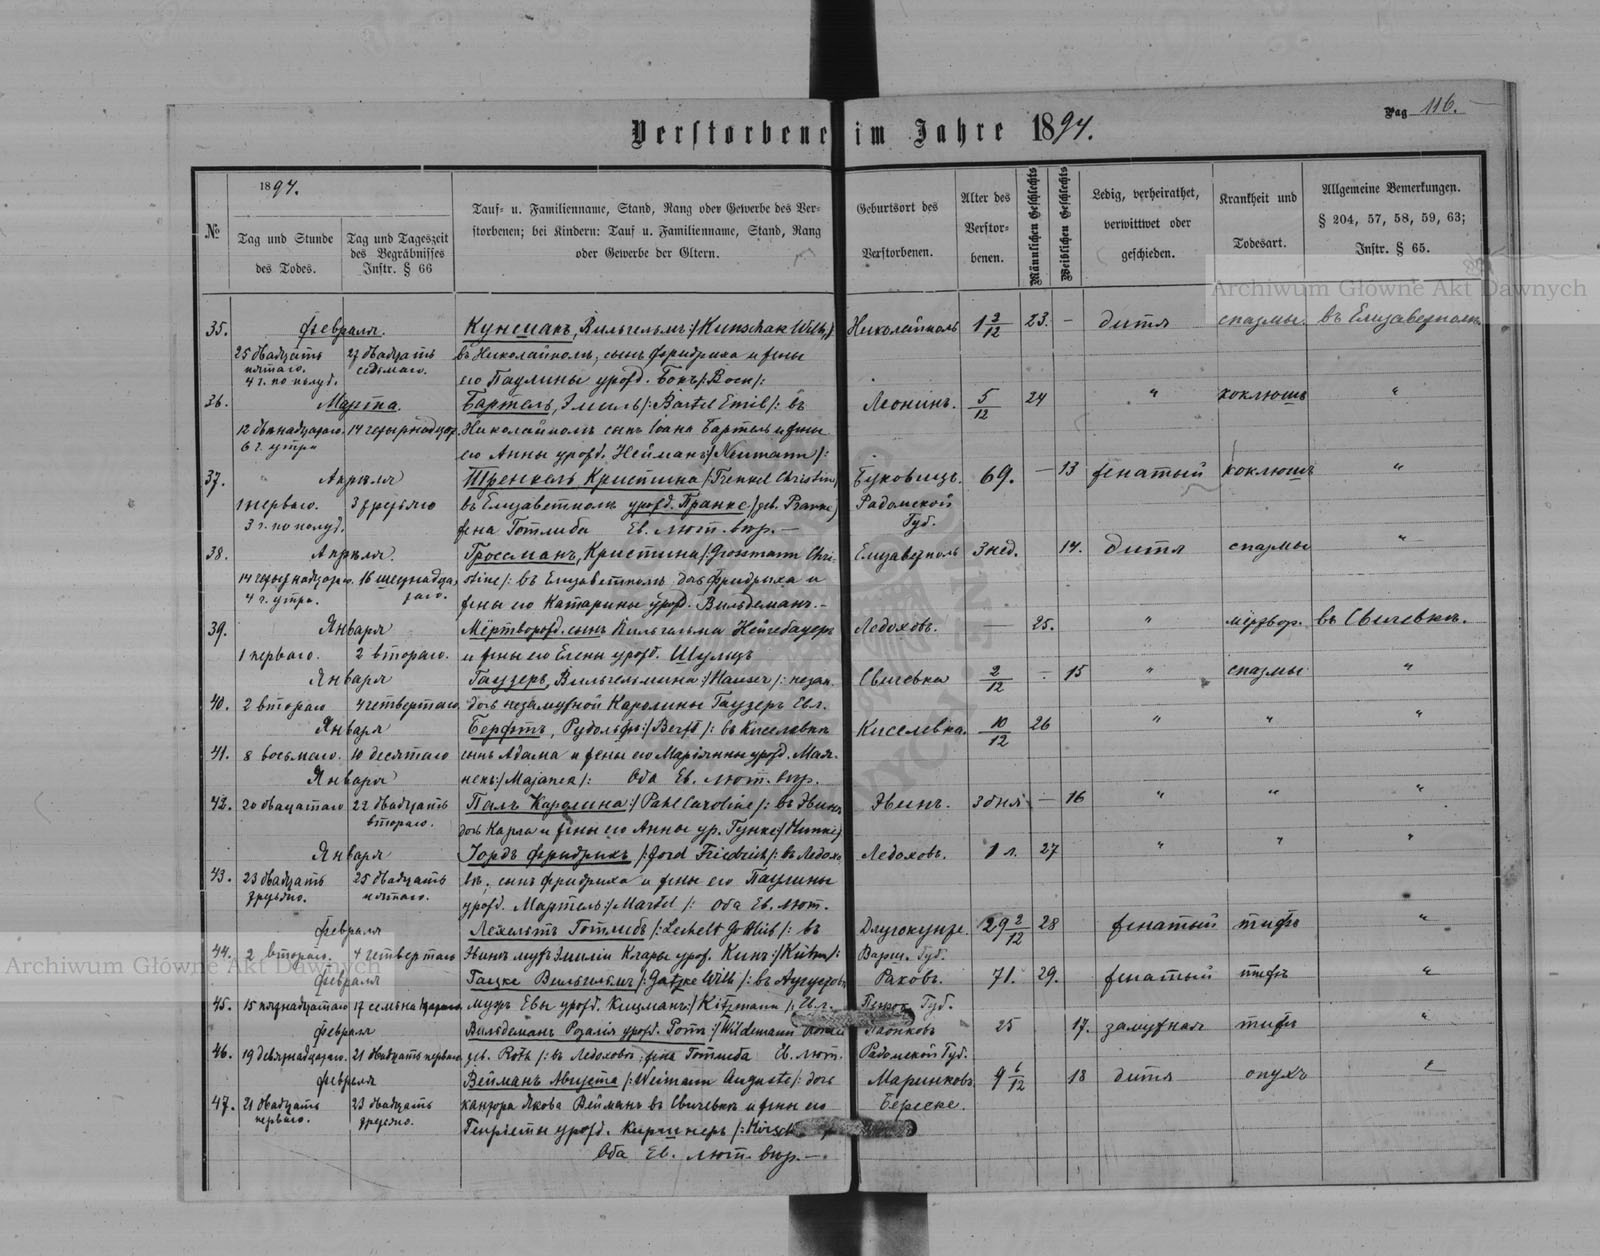 Pag 116.
Verstorbene im Jahre 1894.
№
1894.
Tag und Stunde
des Todes.
Tag und Tageszeit
des Begräbnisses
Instr. § 66
Tauf- u. Familienname, Stand, Rang oder Gewerbe des Ver-
storbenen; bei Kindern: Tauf u. Familienname, Stand, Rang
oder Gewerbe der Eltern.
Geburtsort des
Verstorbenen.
Alter des
Verstor-
benen.
Männlichen Geschlechts
Weiblichen Geschlechts
Ledig, verheirathet,
verwittwet oder
geschieden.
Krankheit und
Todesart.
Allgemeine Bemerkungen.
§ 204, 57, 58, 59, 63;
Instr. § 65.
Archiwum Główne Akt Dawnych
35. Февраля. Кунсшакъ, Вильгельмъ /: Kunschak Wilh. :/ Николайполь 1 3/12 23. — дитя спазмы. въ Елизаветполь
25 двадцать 27 двадцать въ Николайполѣ, сынъ Фридриха и жены
пятаго. седьмаго.
4 ч. по полуд. его Паулины урожд. Бокъ /: Bock /:
36. Марта. Бартель, Эмиль /: Bartel Emil /: въ Леонинъ. 5/12 24 " коклюшъ "
12 двѣнадцатаго. 14 четырнадцат. Николайполѣ сынъ Іоана Бартель и жены
6 ч. утра его Анны урожд. Нейманъ /: Neumann /:
37. Апрѣля Тренкель Кристина /: Trenkel Christine Буковецъ. 69. — 13 женатый коклюшъ "
1 перваго. 3 третьяго въ Елизаветполѣ урожд. Пранке /: geb. Pranke) Радомской
3 ч. по полуд. жена Готлиба Ев. лют. вѣр. — Губ.
38. Апрѣля. Гроссманъ, Кристина /: Grossmann Chri- Елизаветполь 3 нед. 14. дитя спазмы "
14 четырнадцатаго. 16 шестнадца- stine /: въ Елизаветполѣ дочь Фридриха и
4 ч. утра. таго. жены его Катарины урожд. Вильдеманъ. —
39. Января Мёртворожд. сынъ Вильгельма Нейгебауеръ Ледоховъ. — 25. " мёртвор. въ Свичевкѣ.
1 перваго. 2 втораго. и жены его Елены урожд. Шульцъ
Января Гаузеръ, Вильгельмина /: Hauser /: незак. Свичевка 2/12 — 15 " спазмы "
40. 2 втораго 4 четвертаго. дочь незамужной Каролины Гаузеръ Евл.
Января Берфтъ, Рудольфъ /: Berft /: въ Киселевкѣ Киселевка. 10/12 26 " " "
41. 8 восьмаго. 10 десятаго сынъ Адама и жены его Маріянны урожд. Мая-
Января некъ /: Majanek /: Оба Ев. лют. вѣр.
42. 20 двацатаго 22 двадцать Палъ Каролина /: Pahl Caroline /: въ Эвинѣ Эвинъ. 3 дня — 16 " " "
втораго. дочь Карла и жены его Анны ур. Гунке /: Hunke)
Января Іордъ Фридрихъ /: Jord Friedrich /: въ Ледохо- Ледоховъ. 1 л. 27 " " "
43. 23 двадцать 25 двадцать вѣ, сынъ Фридриха и жены его Паулины
третьяго. пятаго. урожд. Мартель /: Martel /: Оба Ев. лют.
Февраля Лехельтъ Готлибъ /: Lechelt Gottlieb /: въ 29 2/12 28 женатый тифъ "
44. 2 втораго. 4 четвертаго Эвинѣ мужъ Эмиліи Клары урож. Кинъ /: Kühn /: Варш. Губ.
Archiwum Główne Akt Dawnych
Февраля Гацке Вильгельмъ /: Gatzke Wilh /: въ Раковъ. 71. 29. женатый тифъ "
45. 15 пятнадцатаго 17 семьнадцатаго. мужъ Евы урожд. Кицманъ /: Kitzmann /: Губ.
Февраля Вильдеманъ Розалія урожд. Ротъ /: Wildemann 25 17. замужная тифъ "
46. 19 девятнадцатаго. 21 двадцать перваго geb. Roth /: въ Ледоховѣ жена Готлиба Ев. лют. Радомской Губ.
Февраля Вейманъ Августа /: Weimann Auguste /: дочь Маринковъ 9 6/12 18 дитя опухъ "
47. 21 двадцать 23 двадцать кантора Якова Вейманъ въ Свичевкѣ и жены его Береске.
перваго. третьяго. Генріеты урожд. Киршнеръ
Оба Ев. лют. вѣр. —